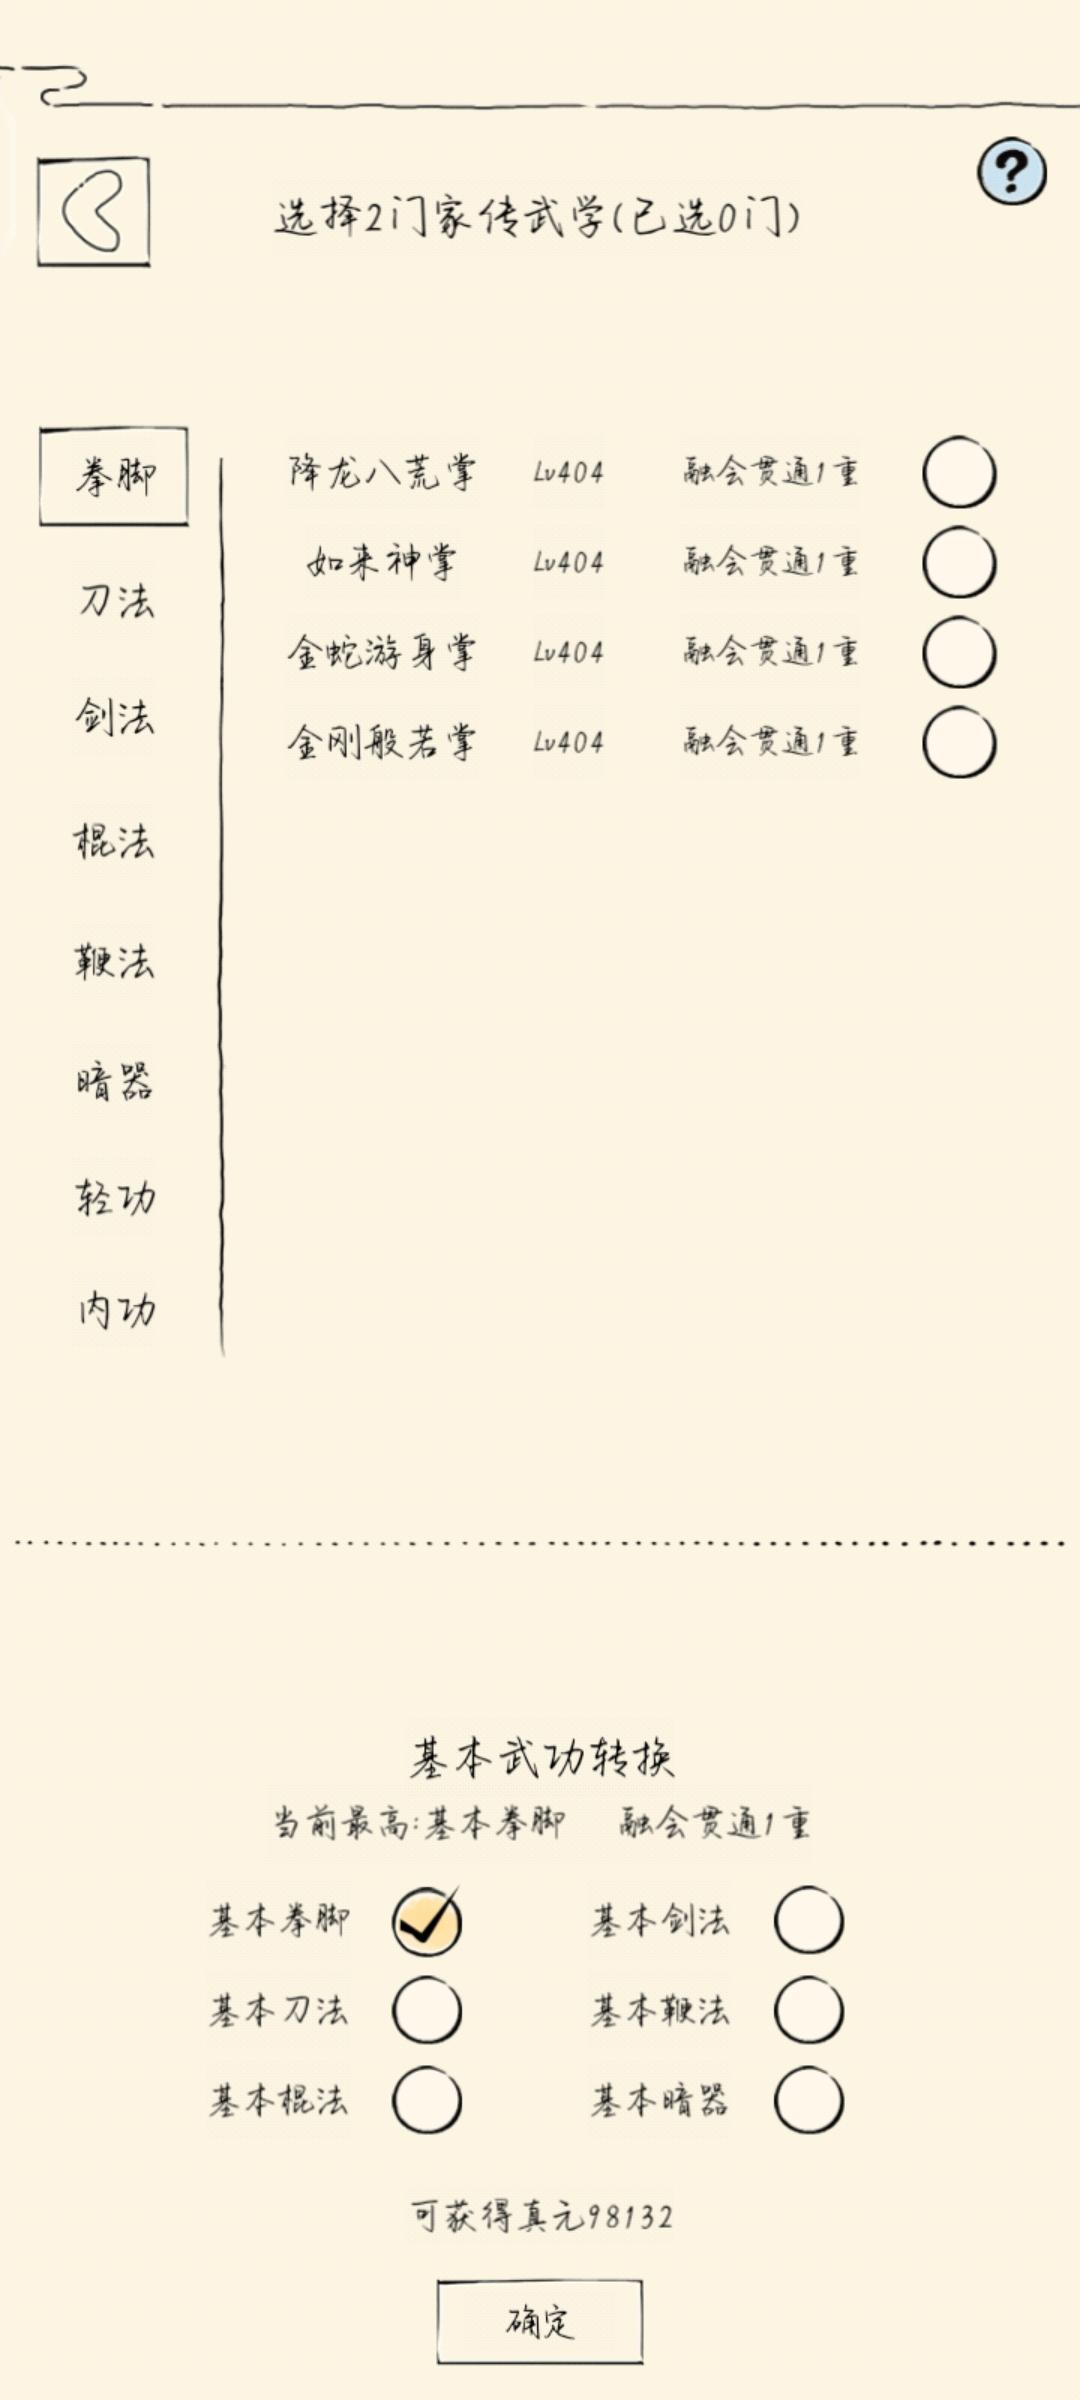 选择2门家传武学(已选0门)
?
拳脚
刀法
剑法
棍法
鞭法
暗器
轻功
内功
降龙八荒掌 Lv404 融会贯通1重
如来神掌 Lv404 融会贯通1重
金蛇游身掌 Lv404 融会贯通1重
金刚般若掌 Lv404 融会贯通1重
基本武功转换
当前最高:基本拳脚 融会贯通1重
基本拳脚 基本剑法
基本刀法 基本鞭法
基本棍法 基本暗器
可获得真元98132
确定